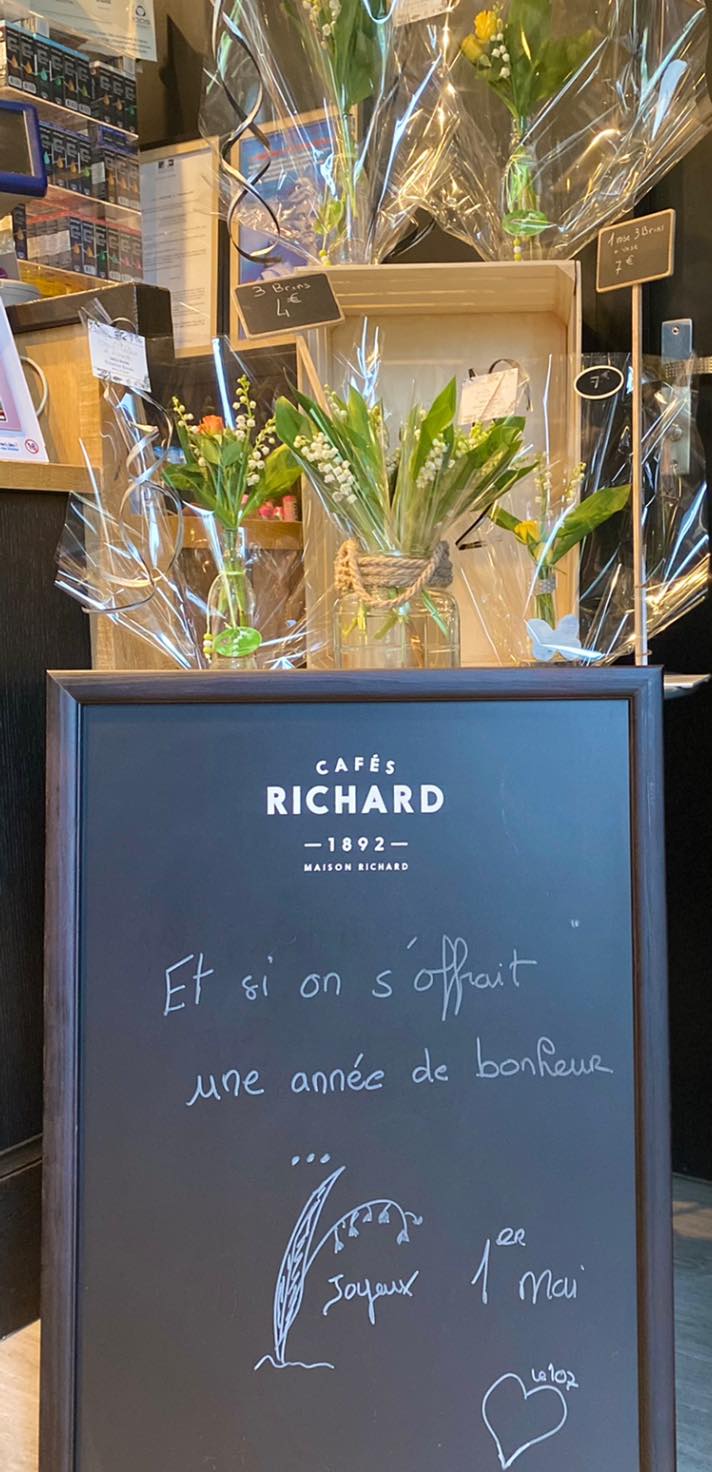 3 Brins
4€
1 rose 3 Brins
+ vase
7€
7€
CAFÉS
RICHARD
—1892—
MAISON RICHARD
Et si on s'offrait
une année de bonheur
...
Joyeux 1er Mai
Le 107